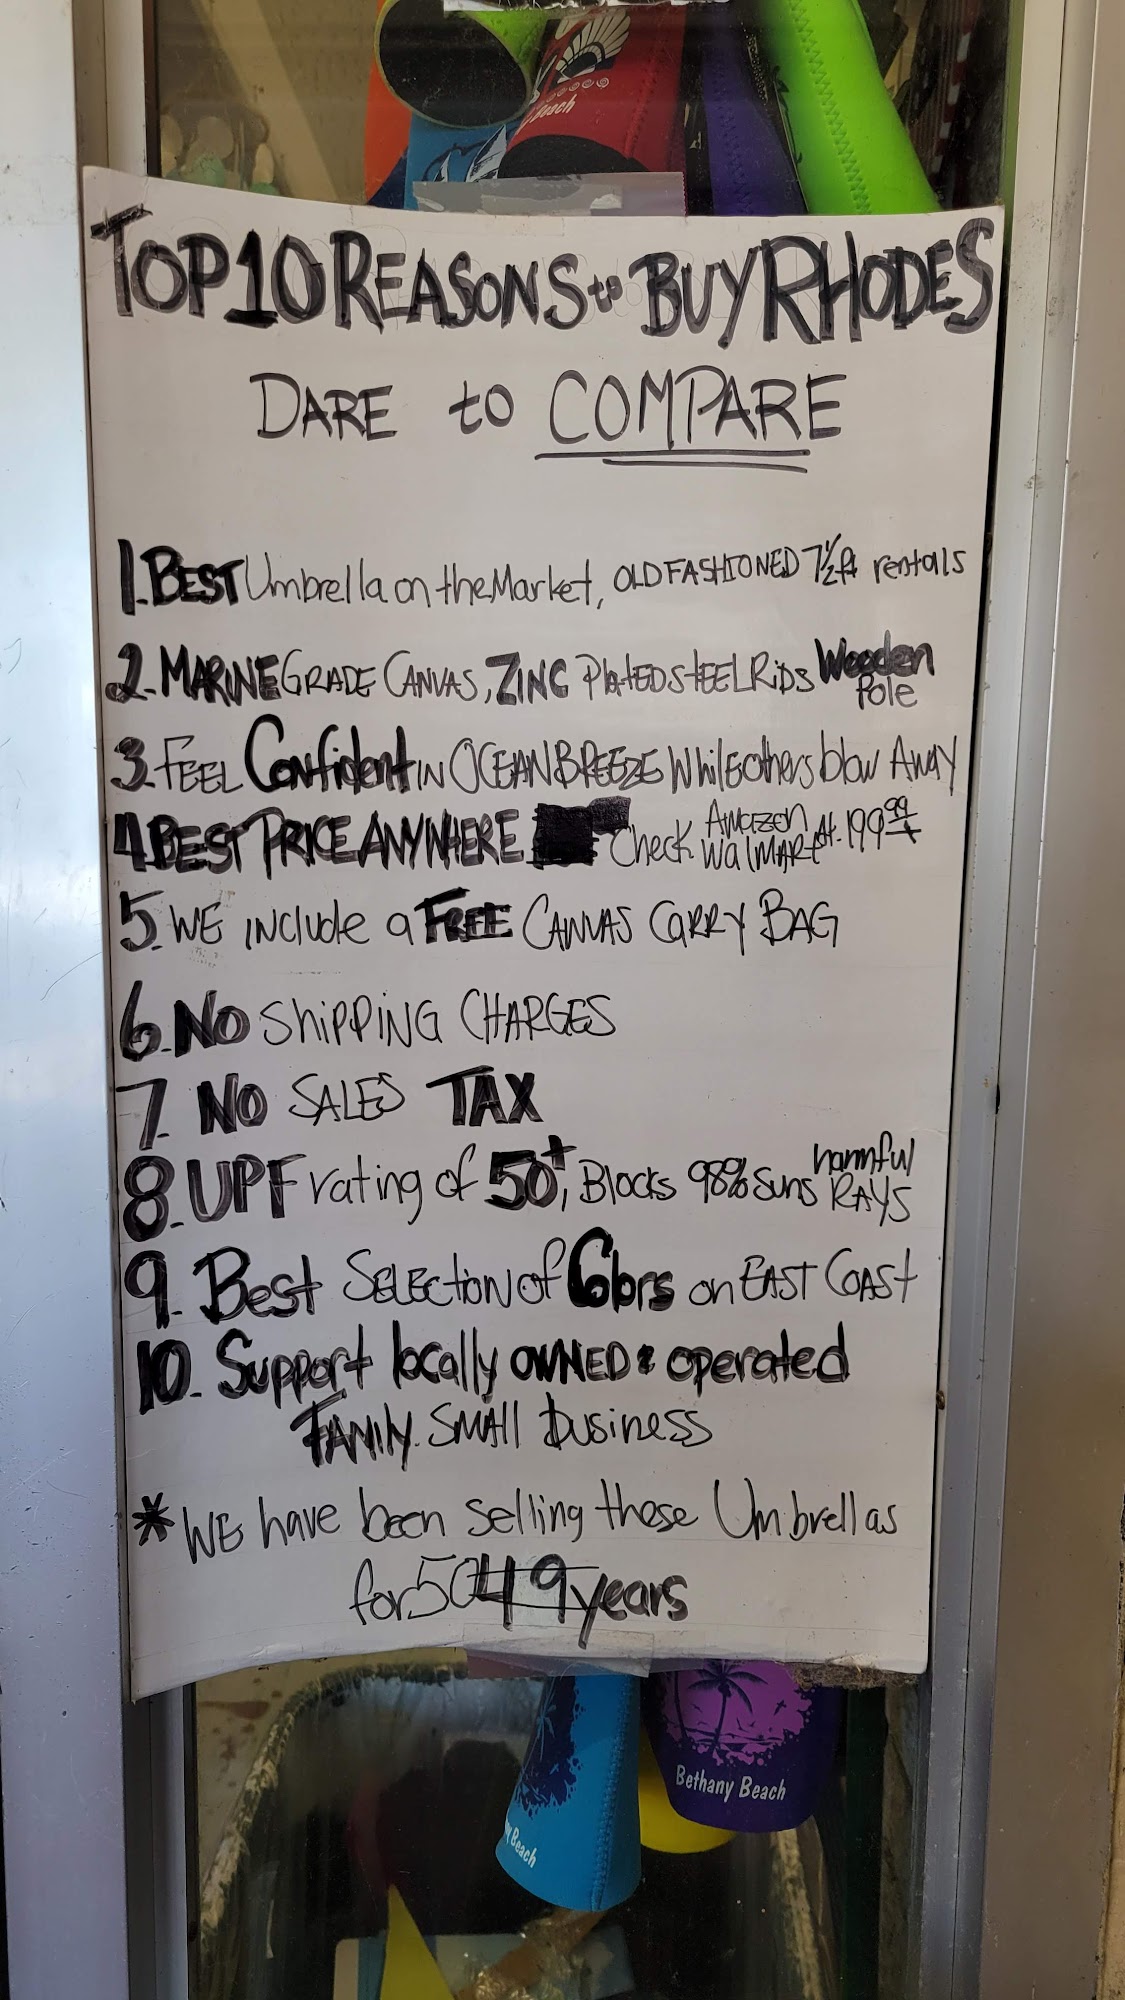 Beach
TOP 10 REASONS to BUY RHODES
DARE to COMPARE
1. BEST Umbrella on the Market, OLD FASHIONED 7½ft rentals
2. MARINE GRADE CANVAS, ZINC PlATED STEEL RIDS Wooden Pole
3. FEEL Confident IN OCEAN BREEZE While others blow AWAY
4. BEST PRICE ANYWHERE Check Amazon WalMART At 199.99
5. WE INCLUDE a FREE CANVAS CARRY BAG
6. NO SHIPPING CHARGES
7. NO SALES TAX
8. UPF rating of 50+, Blocks 98% Suns harmful RAYS
9. Best SELECTION of Colors on EAST COAST
10. Support locally OWNED & operated
FAMILY. SMALL business
* WE have been selling these Umbrellas
for 50 49 years
Bethany Beach
Beach